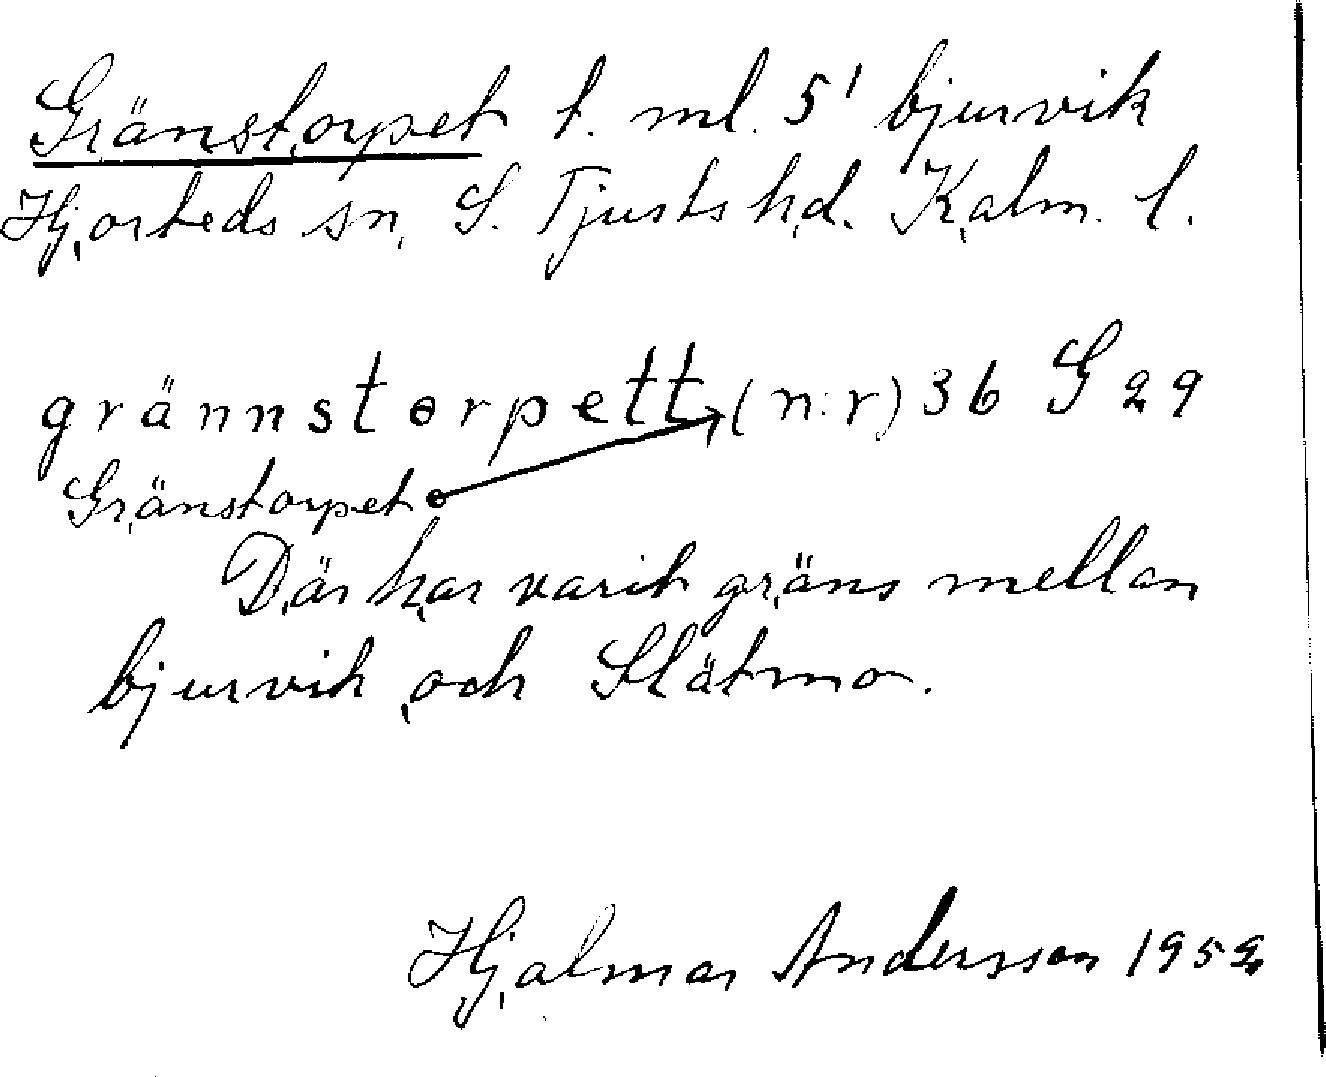 Gränstorpet t. ml. 5' bjurvik
Hjorteds sn, S. Tjusts hd. Kalm. l.
grännstorpett, (n:r) 36 G 29
Gränstorpet
Där har varit gräns mellan
bjurvik och Slätmo.
Hjalmar Andersson 1952